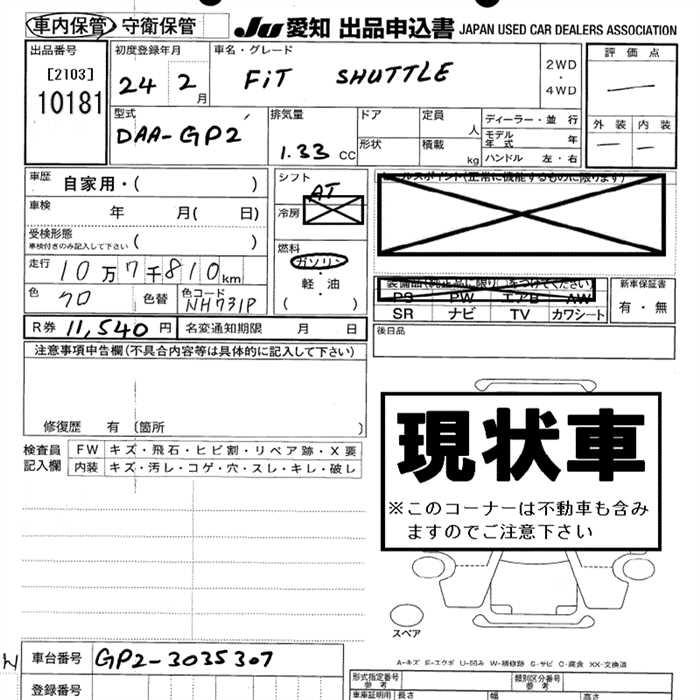 車内保管 守衛保管 JU 愛知 出品申込書 JAPAN USED CAR DEALERS ASSOCIATION
出品番号 初度登録年月 車名・グレード 評価点
[2103] 24 2 月 FiT SHUTTLE 2WD ・ 4WD
10181 外装 内装
型式 排気量 ドア 定員 人 ディーラー・並 行
DAA-GP2 1.33 CC 形状 積載 kg モデル年式 年
ハンドル 左・右
車歴 自家用・( ) シフト AT セールスポイント(正常に機能するものに限ります)
車検 年 月( 日) 冷房
受検形態 ( )
車検付きのみ記入して下さい
燃料
走行 10万7千810km ガソリン
軽・油
( )
装備品(純正品に限り をつけてください) 新車保証書
PS PW エアB AW 有・無
SR ナビ TV カワシート
色 クロ 色替 色コード NH731P
R券 11,540 円 名変通知期限 月 日 後日品
注意事項申告欄(不具合内容等は具体的に記入して下さい)
修復歴 有 〔箇所 〕
検査員記入欄 FW キズ・飛石・ヒビ割・リペア跡・X要
内装 キズ・汚レ・コゲ・穴・スレ・キレ・破レ
現状車
※このコーナーは不動車も含み
ますのでご注意下さい
スペア
A-キズ E-エクボ U-凹み W-補修跡 S-サビ C-腐食 XX-交換済
車台番号 GP2-3035307
登録番号
形式指定番号 参考 類別区分番号 参考
車庫証明用 長さ 幅 高さ